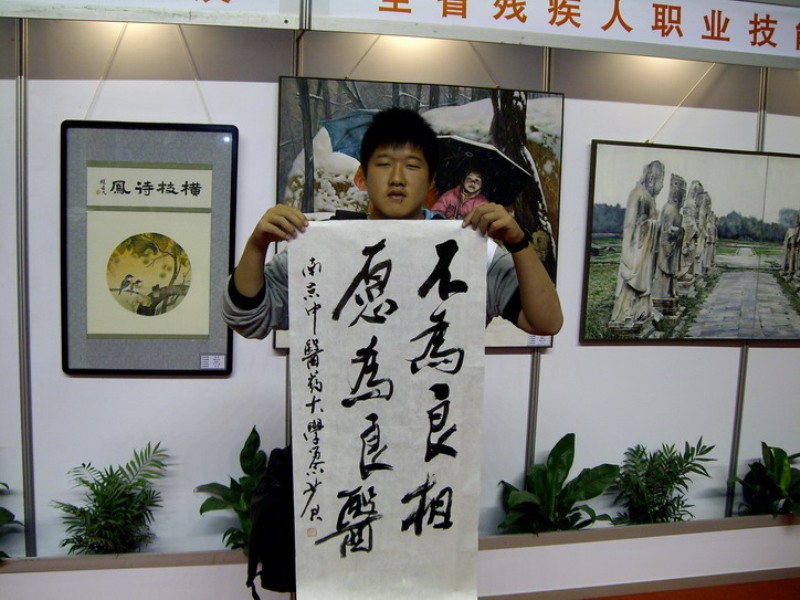 全省残疾人职业技能
橫枝詩鳳
不為良相
愿為良醫
南京中醫药大學